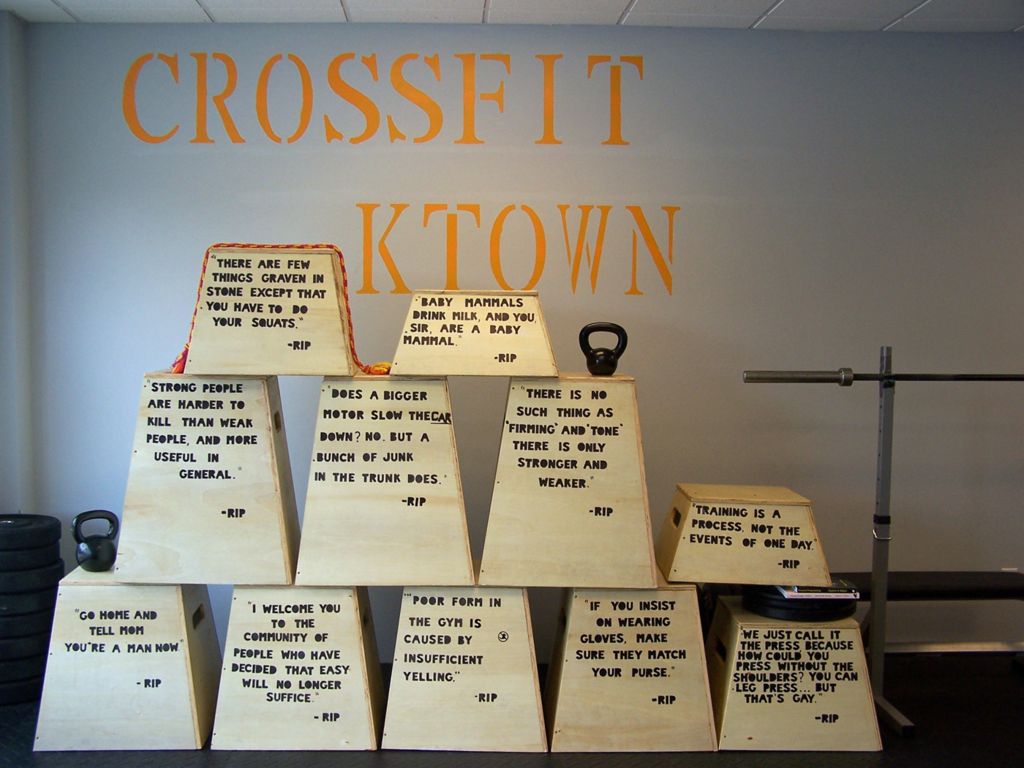 CROSSFIT
KTOWN
"THERE ARE FEW
THINGS GRAVEN IN
STONE EXCEPT THAT
YOU HAVE TO DO
YOUR SQUATS."
-RIP
"BABY MAMMALS
DRINK MILK, AND YOU,
SIR, ARE A BABY
MAMMAL."
-RIP
"STRONG PEOPLE
ARE HARDER TO
KILL THAN WEAK
PEOPLE, AND MORE
USEFUL IN
GENERAL."
-RIP
"DOES A BIGGER
MOTOR SLOW THE CAR
DOWN? NO. BUT A
BUNCH OF JUNK
IN THE TRUNK DOES."
-RIP
"THERE IS NO
SUCH THING AS
'FIRMING' AND 'TONE'
THERE IS ONLY
STRONGER AND
WEAKER."
-RIP
"TRAINING IS A
PROCESS, NOT THE
EVENTS OF ONE DAY."
-RIP
"GO HOME AND
TELL MOM
YOU'RE A MAN NOW"
-RIP
"I WELCOME YOU
TO THE
COMMUNITY OF
PEOPLE WHO HAVE
DECIDED THAT EASY
WILL NO LONGER
SUFFICE."
-RIP
"POOR FORM IN
THE GYM IS
CAUSED BY
INSUFFICIENT
YELLING."
-RIP
"IF YOU INSIST
ON WEARING
GLOVES, MAKE
SURE THEY MATCH
YOUR PURSE."
-RIP
"WE JUST CALL IT
THE PRESS BECAUSE
HOW COULD YOU
PRESS WITHOUT THE
SHOULDERS? YOU CAN
LEG PRESS... BUT
THAT'S GAY."
-RIP